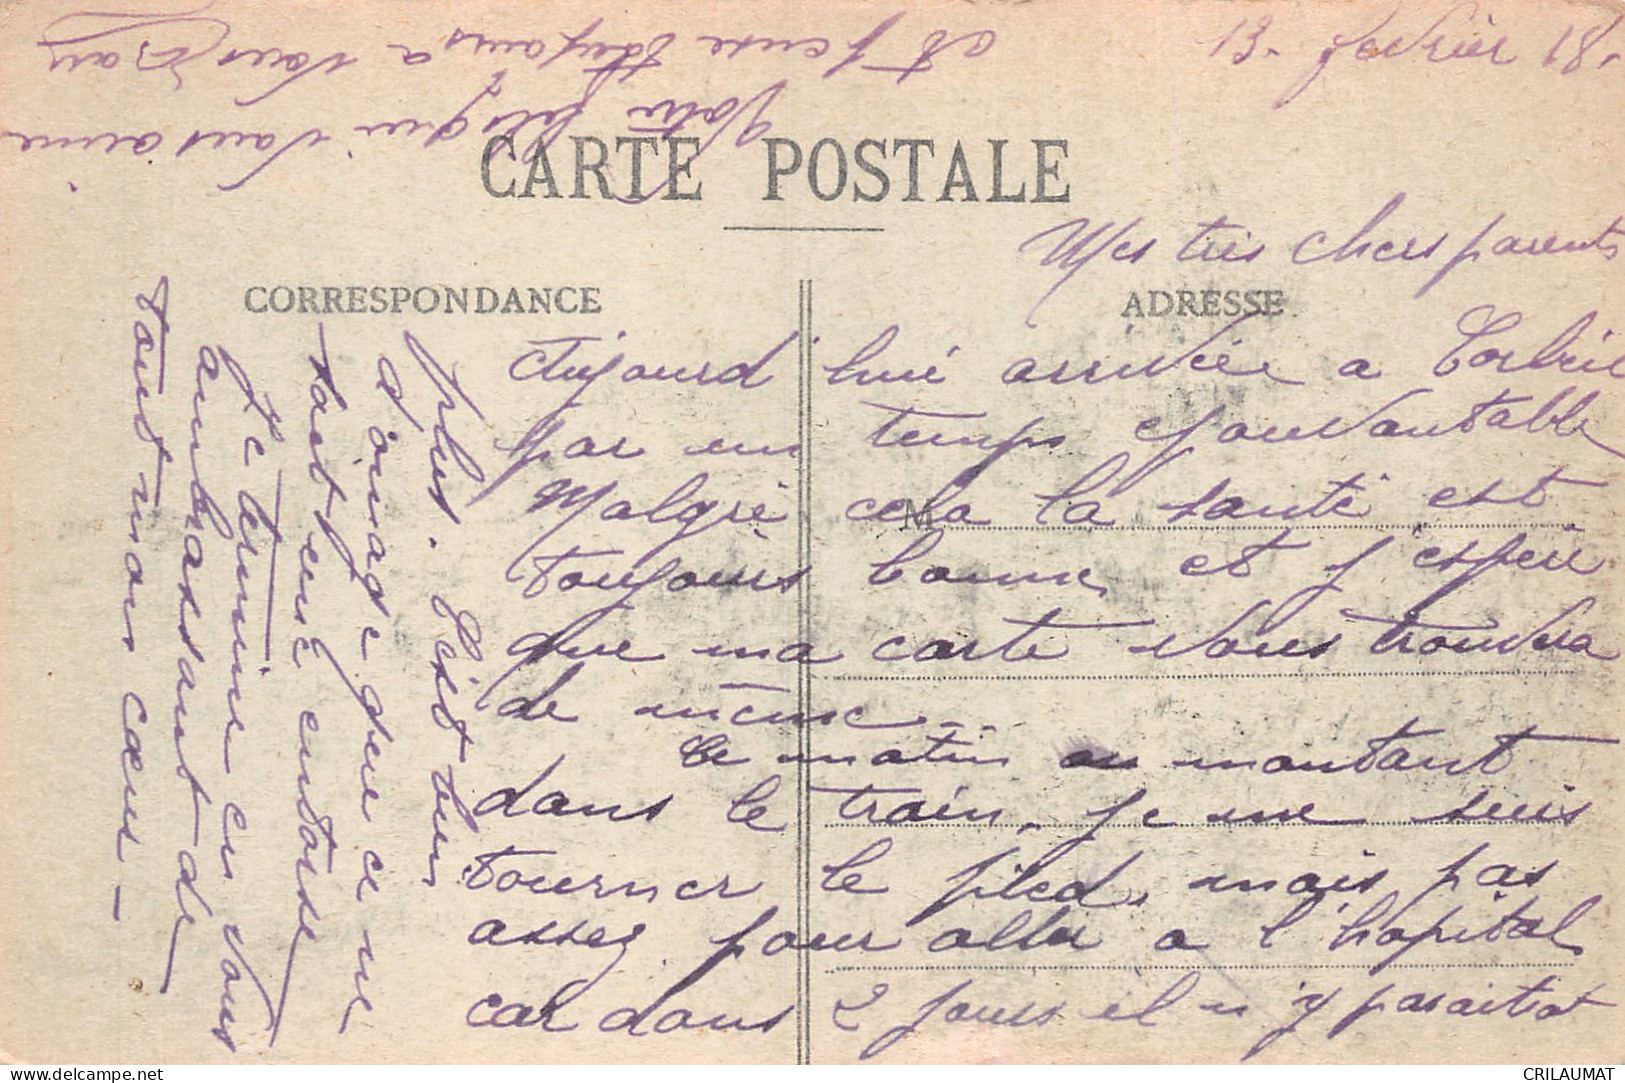 13. fevrier 18.
CARTE POSTALE
Mes très chers parents
CORRESPONDANCE
ADRESSE
Aujourd'hui arrivée a Corbeil
par un temps epouvantable
Malgré cela la santé est
M
toujours bonne, et j'espère
que ma carte vous trouvera
de même.
Ce matin en montant
dans le train, je me suis
tourner le pied, mais pas
assez pour aller a l'hopital
car dans 2 jours il n'y paraitrat
plus. C'est bien
d'omage que ce ne
soit pas une entorse
Je termine en vous
embrassant de
tout mon cœur -
Votre fils qui vous aime
et pense toujours a vous
CRILAUMAT